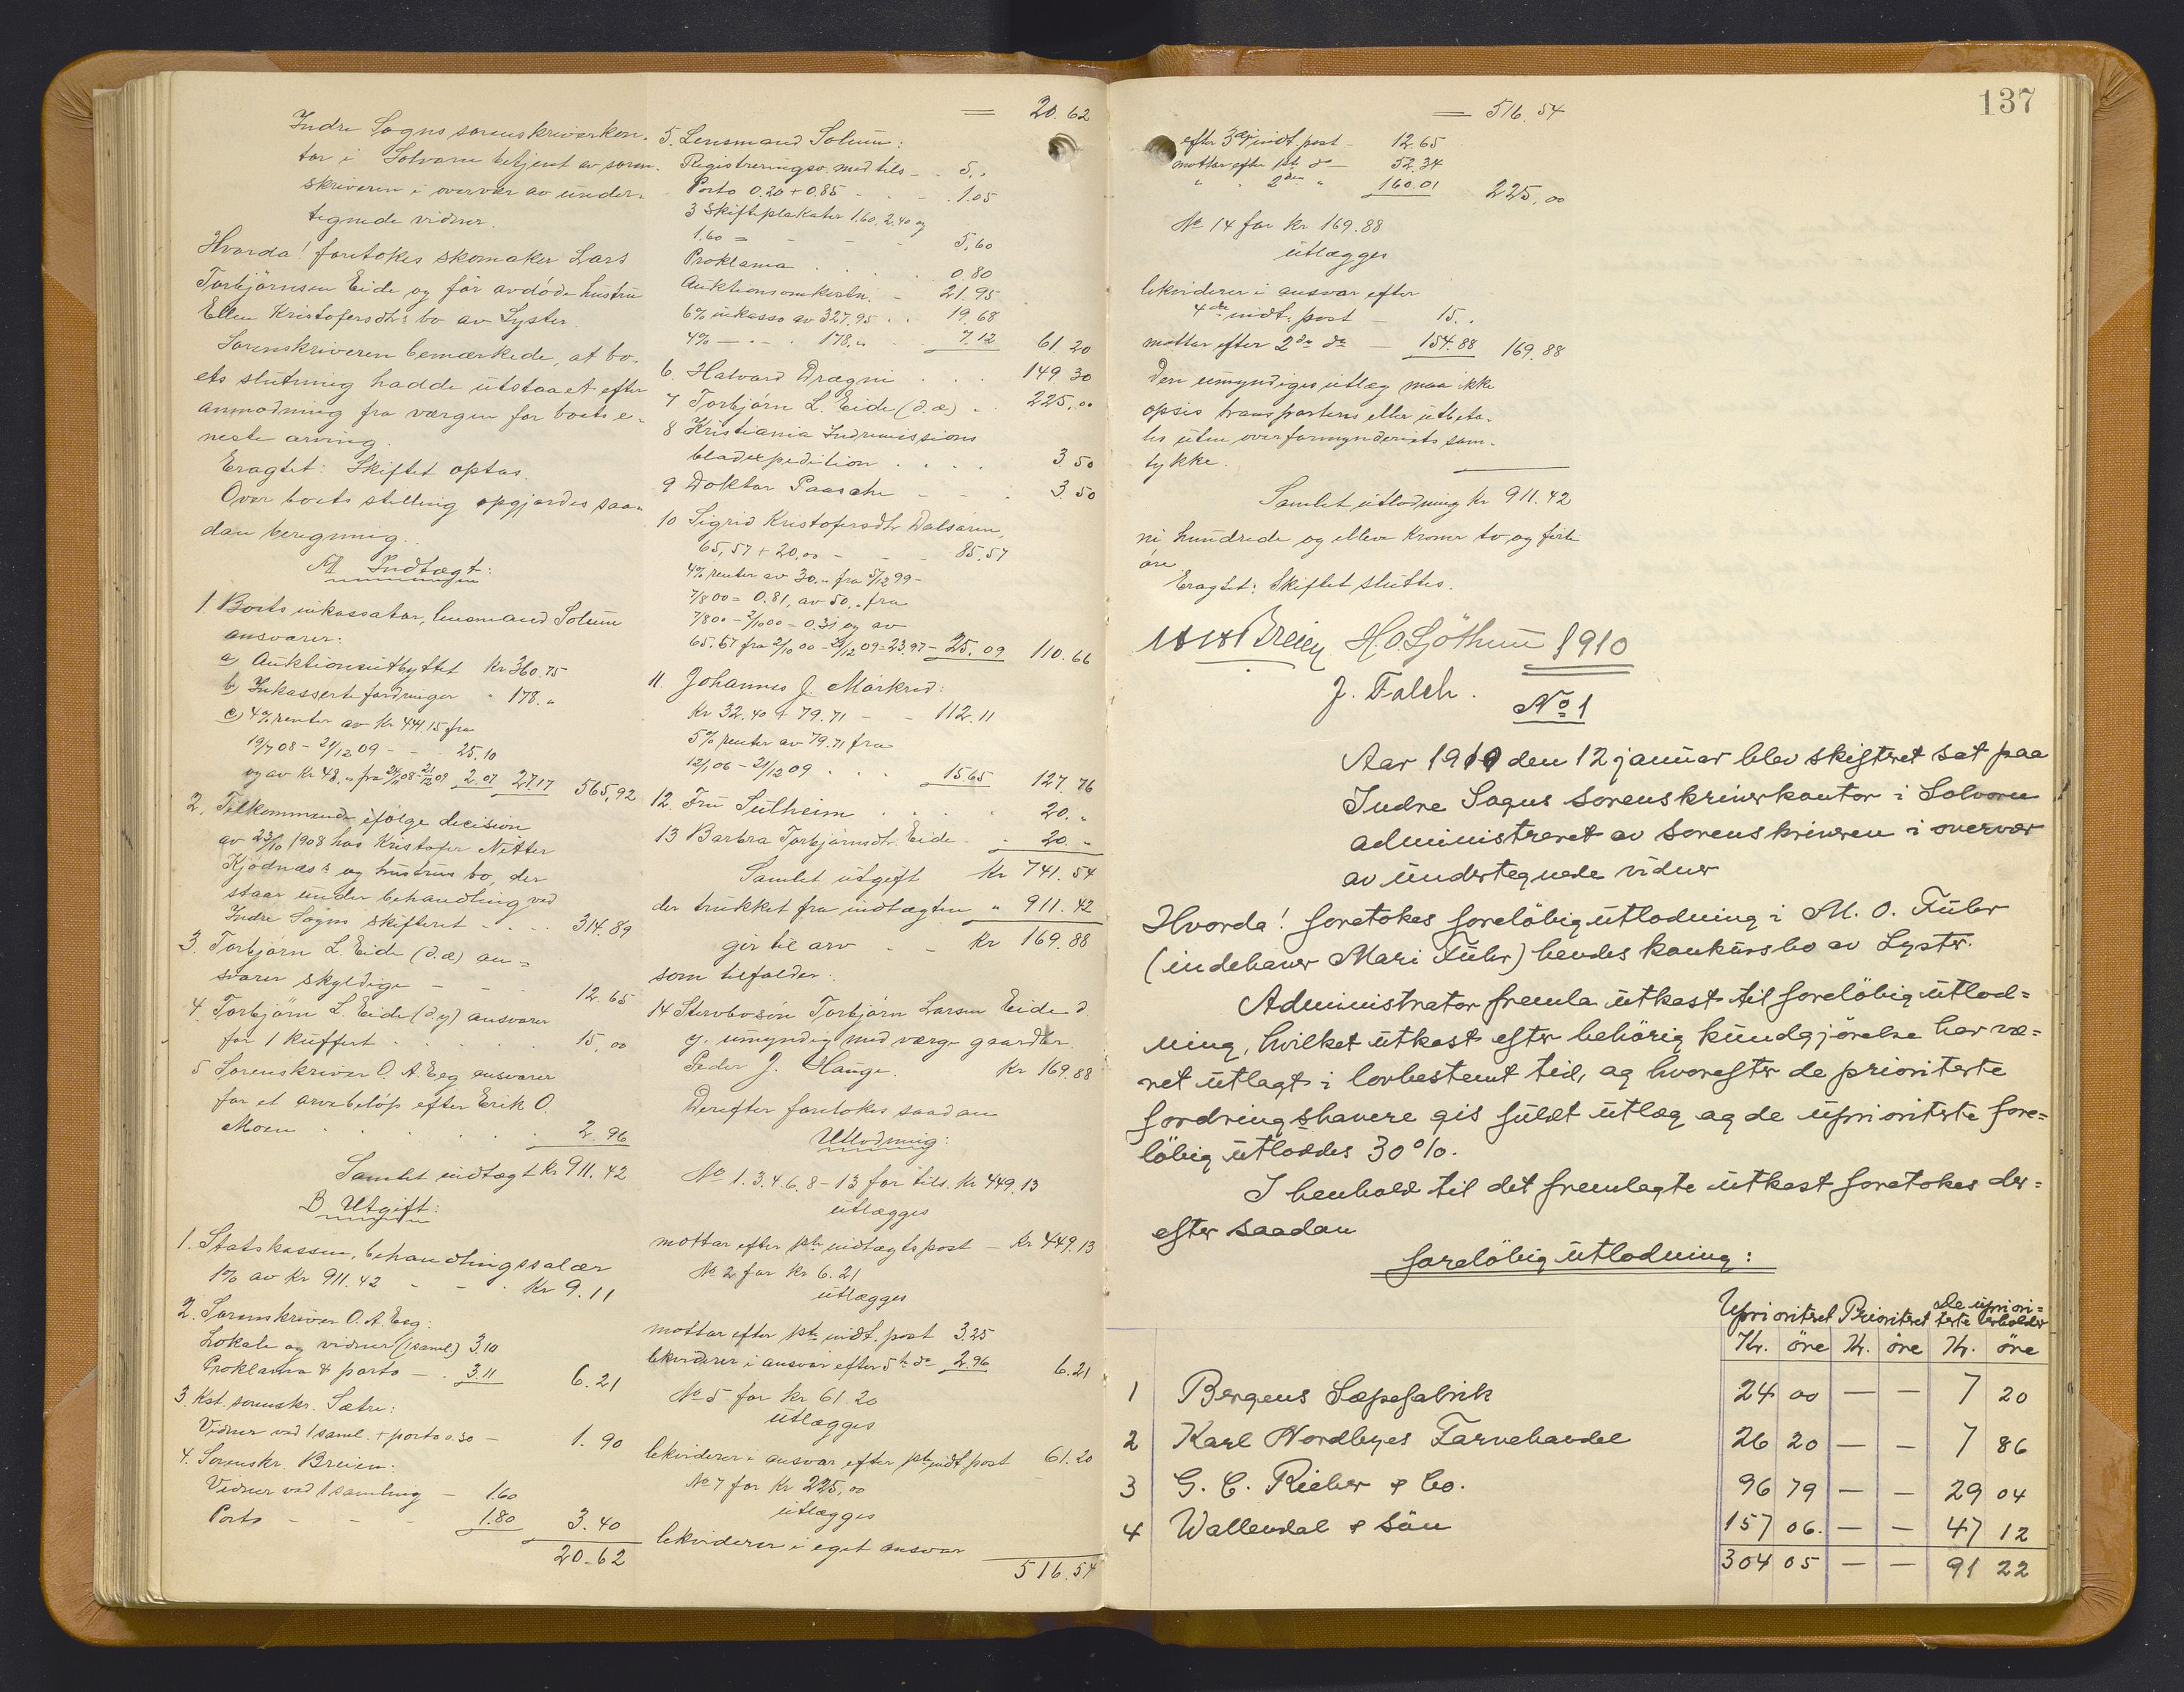 Indre Sogns sorenskriverkon-
tor i Solvorn betjent av soren-
skriveren i overvær av under-
tegnede vidner.
Hvorda! foretokes skomaker Lars
Torbjörnsen Eide og før avdöde hustru
Ellen Kristofersdtrs bo av Lyster.
Sorenskriveren bemærkede, at bo-
ets slutning hadde utstaaet efter
anmodning fra værgen for boets e-
neste arving.
Eragtet: Skiftet optas.
Over boets stilling opgjordes saa-
dan beregning.
A Indtægt:
1. Boets inkassator, lensmand Solum
ansvarer:
a) Auktionsutbyttet Kr 360.75
b) Inkasserte fordringer " 178."
c) 4% renter av Kr 441.15 fra
19/7 08 - 21/12 09 - - 25.10
og av Kr 48." fra 24/11 08 - 21/12 09 2.07 27.17 565,92
2. Tilkommende ifölge decision
av 23/10 1908 hos Kristofer Nitter
Kjödnæs's og hustrus bo, der
staar under behandling ved
Indre Sogns skifteret - . . . 314.89
3. Torbjörn L. Eide (d.æ) an=
svarer skyldige - - - 12.65
4. Torbjörn L. Eide (d.y) ansvarer
for 1 kuffert . . . . . 15,00
5 Sorenskriver O. A. Eeg ansvarer
for et arvebelöp efter Erik O.
Moen . . . . . . 2.96
Samlet indtægt Kr 911.42
B Utgift:
1. Statskassen, behandlingssalær
1% av Kr 911.42 - - . Kr 9.11
2. Sorenskriver O. A. Eeg:
Lokale og vidner (1 saml) 3.10
Proklama & porto - . 3.11 6.21
3. Kst. sorenskr. Sætre:
Vidner ved 1 saml. + porto 0.30 - 1.90
4. Sorenskr. Breien:
Vidner ved 1 samling - 1.60
Porto - - - 1.80 3.40
20.62
= 20.62
5. Lensmand Solum:
Registreringsv. med tils - . 5.,
Porto 0.20 + 0.85 - - . 1.05
3 skifteplakater 1.60, 2.40 og
1.60 = - - - 5,60
Proklama . . . . 0.80
Auktionsomkostn. - 21.95
6% inkasso av 327.95 . . 19.68
4% - . - . 178." . 7.12 61.20
6. Halvard Drægni . . . 149.30
7 Torbjörn L. Eide (d.æ) . 225,00
8 Kristiania Indremissions
bladexpedition . . . . 3.50
9 Doktor Paasche - - . 3.50
10 Sigrid Kristofersdtr Dalsören,
65,57 + 20.00 - - - 85.57
4% renter av 30." fra 5/12 99 -
7/8 00 = 0.81, av 50,. fra
7/8 00 - 2/10 00 - 0.31 og av
65.57 fra 2/10 00 - 21/12 09 = 23.97 - 25.09 110.66
11. Johannes J. Mörkred:
Kr 32.40 + 79.71 - - 112.11
5% renter av 79.71 fra
12/1 06 - 21/12 09 . . . 15.65 127.76
12. Fru Sulheim . . . . 20."
13 Barbra Torbjörnsdtr Eide . . 20."
Samlet utgift Kr 741.54
der trukket fra indtægten " 911.42
gir til arv - - Kr 169.88
som tilfalder:
14 Stervbosön Torbjörn Larsen Eide d.
y. umyndig med værge gaardbr.
Peder J. Hauge. Kr 169.88
Derefter foretokes saadan
Utlodning:
No 1. 3. 4. 6. 8 - 13 for tils. Kr 449.13
utlægges
mottar efter 1ste indtægtspost - Kr 449.13
No 2 for Kr 6.21
utlægges
mottar efter 1ste indt. post 3.25
likviderer i ansvar efter 5te do 2.96 6.21
No 5 for Kr 61.20
utlægges
likviderer i ansvar efter 1ste indt. post 61.20
No 7 for Kr 225,00
utlægges
likviderer i eget ansvar
516.54
137
= 516.54
efter 3die indt. post - 12.65
mottar efter 1ste do - 52.34
" . 2den " 160.01 225,00
No 14 for Kr 169.88
utlægges
likviderer i ansvar efter
4de indt. post - 15..
mottar efter 2den do - 154.88 169.88
Den umyndiges utlæg maa ikke
opsies transporteres eller utbeta-
les uten overformynderiets sam-
tykke.
Samlet utlodning Kr 911.42
ni hundrede og elleve kroner to og förti
öre.
Eragtet: Skiftet sluttes.
Breien H. O. Sjöthun 1910
J. Falch.
No 1
Aar 1910 den 12 januar blev skifteret sat paa
Indre Sogns sorenskriverkontor i Solvorn
administreret av sorenskriveren i overvær
av undertegnede vidner
Hvorda! foretokes foreløbig utlodning i M. O. Fuhr
(indehaver Mari Fuhr) hendes konkursbo av Lyster.
Administrator fremla utkast til foreløbig utlod=
ning, hvilket utkast efter behörig kundgjörelse har væ=
ret utlagt i lovbestemt tid, og hvorefter de prioriterte
fordringshavere gis fuldt utlæg og de uprioriterte fore=
löbig utloddes 30%.
I henhold til det fremlagte utkast foretokes der=
efter saadan
foreløbig utlodning:
Uprioritert Prioritert De upriori=
terte erholder
Kr. öre Kr. öre Kr. öre
1 Bergens Sæpefabrik 24 00 — — 7 20
2 Karl Nordbyes Farvehandel 26 20 — — 7 86
3 G. C. Rieber & Co. 96 79 — — 29 04
4 Wallendal & Sön 157 06. — — 47 12
304 05 — — 91 22